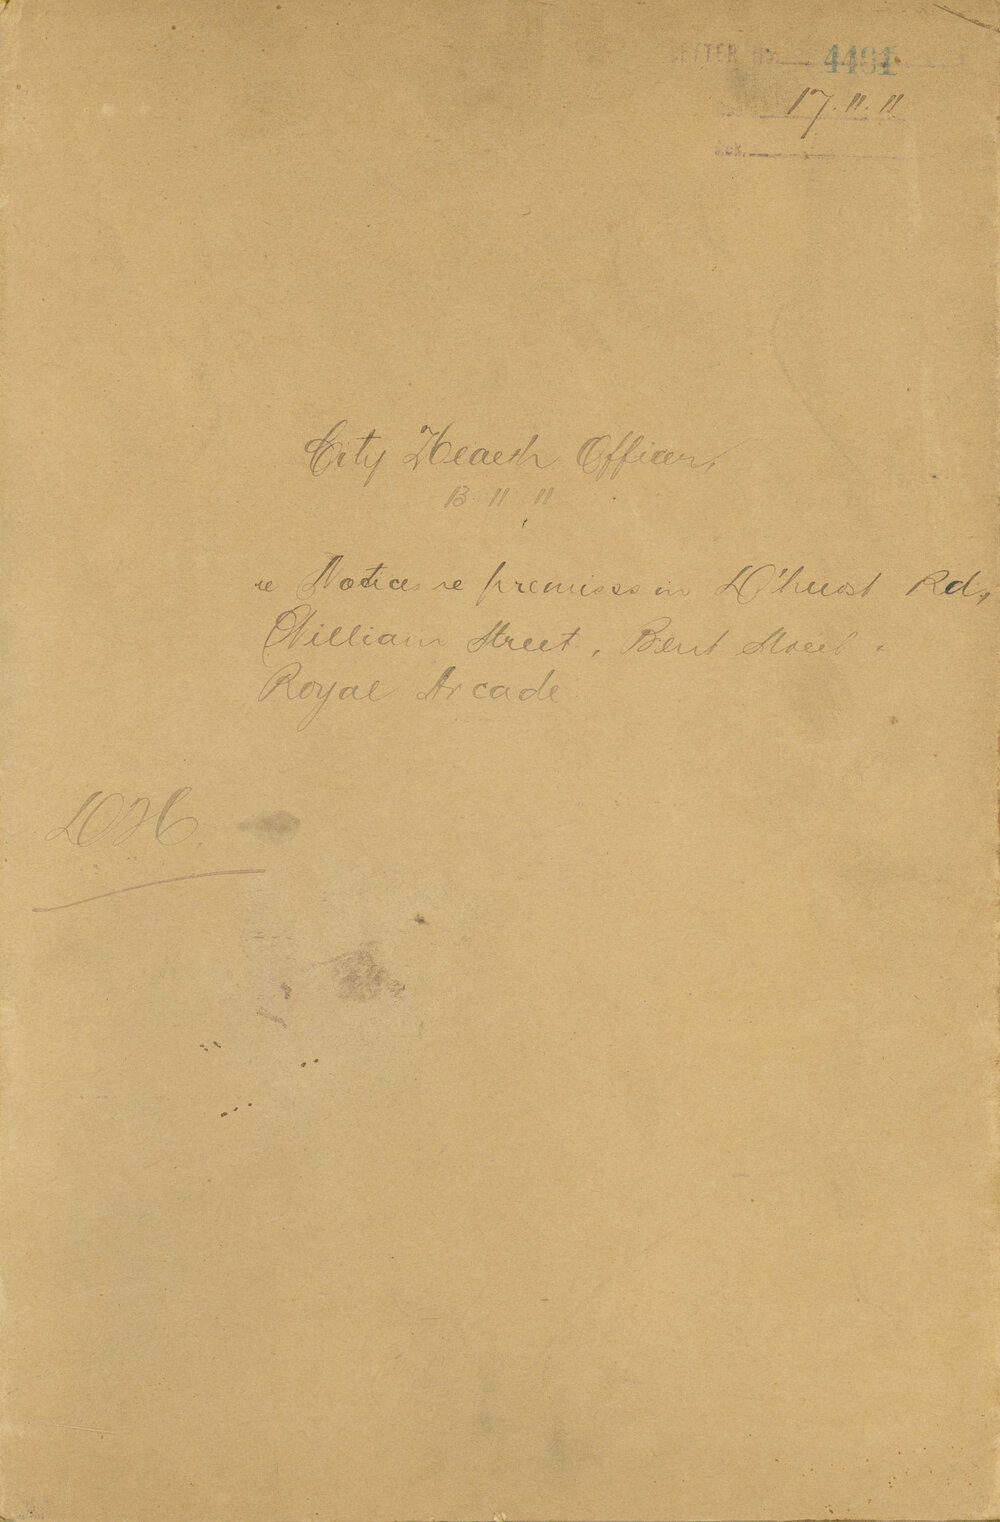 LETTER No. 4491
17.11.11
Ack.
City Health Officer,
13.11.11
re Notices re premises in D'hurst Rd,
William Street, Bent Street,
Royal Arcade